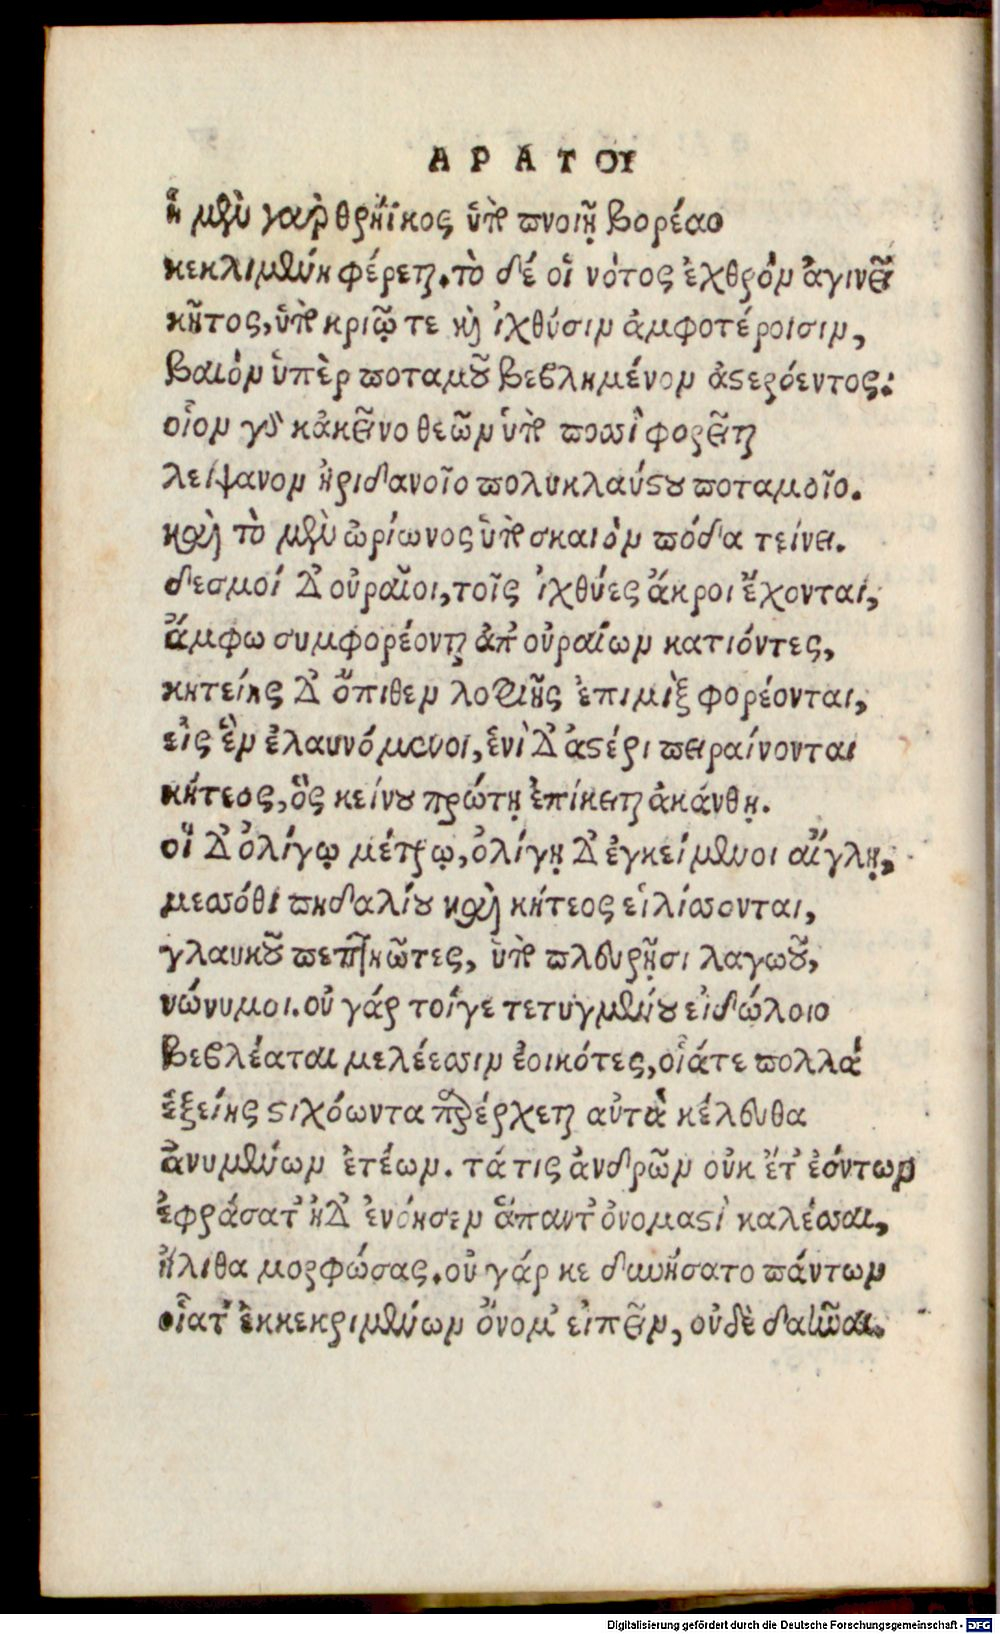 ΑΡΑΤΟΥ
ἣ μὲν γὰρ θρηΐκος ὑπὸ πνοιῇ βορέαο
κεκλιμένη φέρεται. τὸ δέ οἱ νότος ἐχθρὸν ἀγινεῖ
κῆτος, ὑπὸ κριῷ τε καὶ ἰχθύσιν ἀμφοτέροισιν,
βαιὸν ὑπὲρ ποταμοῦ βεβλημένον ἀστερόεντος:
οἶον γὰρ κἀκεῖνο θεῶν ὑπὸ ποσσὶ φορεῖται
λείψανον ἠριδανοῖο πολυκλαύστου ποταμοῖο.
καὶ τὸ μὲν ὠρίωνος ὑπὸ σκαιὸν πόδα τείνει.
δεσμοί δ' οὐραῖοι, τοῖς ἰχθύες ἄκροι ἔχονται,
ἄμφω συμφορέονται ἀπ' οὐραίων κατιόντες,
κητείης δ' ὄπιθεν λοφιῆς ἐπιμὶξ φορέονται,
εἰς ἓν ἐλαυνόμενοι, ἑνὶ δ' ἀστέρι πειραίνονται
κήτεος, ὃς κείνου πρώτῃ ἐπίκειται ἀκάνθῃ.
οἳ δ' ὀλίγῳ μέτρῳ, ὀλίγῃ δ' ἐγκείμενοι αἴγλῃ,
μεσσόθι πηδαλίου καὶ κήτεος εἱλίσσονται,
γλαυκοῦ πεπτηκῶτες, ὑπὸ πλευρῇσι λαγωοῦ,
νώνυμοι. οὐ γάρ τοίγε τετυγμένου εἰδώλοιο
βεβλέαται μελέεσσιν ἐοικότες, οἷάτε πολλὰ
ἑξείης στιχόωντα παρέρχεται αὐτὰ κέλευθα
ἀνυμένων ἐτέων. τά τις ἀνδρῶν οὐκ ἔτ' ἐόντων
ἐφράσατ' ἠδ' ἐνόησεν ἅπαντ' ὀνομαστὶ καλέσσαι,
ἤλιθα μορφώσας. οὐ γάρ κε δυνήσατο πάντων
οἷατ' ἐκκεκριμένων ὄνομ' εἰπεῖν, οὐδὲ δαῶσαι.
Digitalisierung gefördert durch die Deutsche Forschungsgemeinschaft - DFG